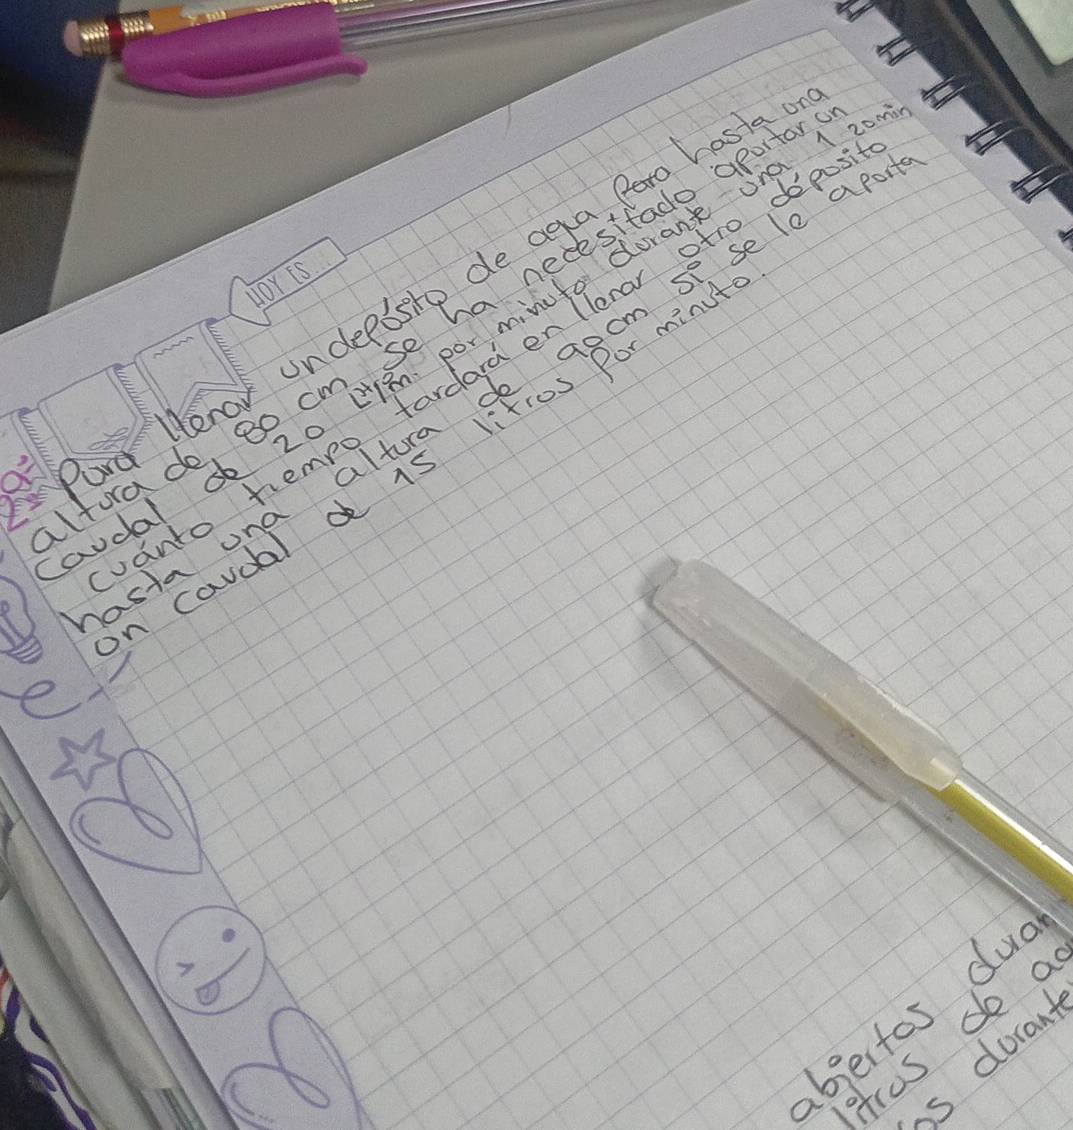 HOY ES...
2a=
Para llenar un depósito de agua Para hasta una
altura de 80 cm se ha necesitado aportar un
caudal de 20 por minuto durante una 1 20 min
cuánto tiempo tardará en llenar otro déposito
hasta una altura de 90 cm si se le aporta
un caudal de 15 litros por minuto.
abiertos duran
litros de
os durante